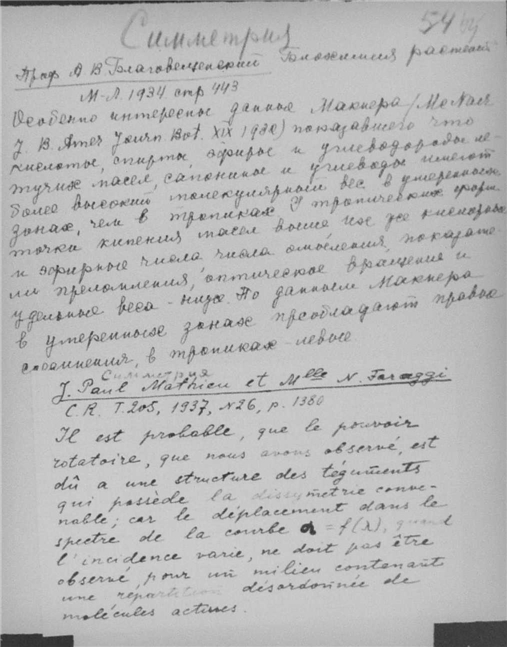 Симметрия
54
Проф А В Благовещенский Биохимия растений
М-Л. 1934 стр 443
Особенно интересны данные Макнера/McNair
J. B. Amer Journ Bot. XIX 1932) показавшего что
кислоты, спирты, эфиры и углеводороды ле-
тучих масел, сапонины и углеводы имеют
более высокий молекулярный вес в умеренных
зонах, чем в тропиках У тропических форм
точки кипения масел выше их же кислотные
и эфирные числа числа омыления, показате-
ли преломления, оптическое вращение и
удельные веса - ниже. По данным Макнера
в умеренных зонах преобладают правые
соединения, в тропиках - левые.
Симметрия
J. Paul Mathieu et Mlle N. Faraggi
C.R. T.205, 1937, N26, p. 1380
Il est probable, que le pouvoir
rotatoire, que nous avons observé, est
dû a une structure des téguments
qui possède la dissymétrie conve-
nable; car le déplacement dans le
spectre de la courbe α = f(λ), quand
l'incidence varie, ne doit pas être
observé, pour un milieu contenant
une répartition désordonnée de
molécules actives.